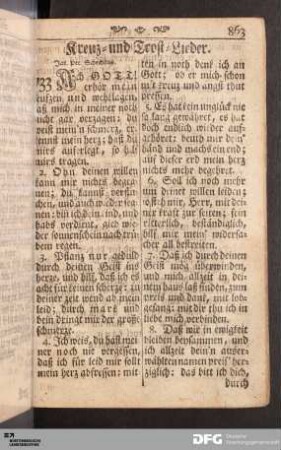 863
Kreuz- und Trost-Lieder.
Jac. Pet. Schechs.
Ach GOTT!
erhör mein
seufzen, und wehklagen,
laß mich in meiner noth
nicht gar verzagen: du
weist mein'n schmerz, er-
kennst mein herz; hast du
mirs auferlegt, so hilf
mirs tragen.
2. Ohn deinen willen
kann mir nichts begeg-
nen; du kannst verflu-
chen, und auch wieder seg-
nen: bin ich dein kind, und
habs verdient, gieb wie-
der sonnenschein nach trü-
bem regen.
3. Pflanz nur geduld
durch deinen Geist ins
herze, und hilf, daß ich es
acht für keinen scherze: zu
deiner zeit wend ab mein
leid; durch mark und
bein dringt mir der große
schmerze.
4. Ich weis, du hast mei-
ner noch nie vergessen,
daß ich für leid mir sollt
mein herz abfressen: mit-
ten in noth denk ich an
Gott; ob er mich schon
mit kreuz und angst thut
pressen.
5. Es hat kein unglück nie
so lang gewähret, es hat
doch endlich wieder auf-
gehöret: beuth mir dein'
händ und machs ein end;
auf dieser erd mein herz
nichts mehr begehret.
6. Soll ich noch mehr
um deinet willen leiden;
so steh mir, Herr, mit dei-
ner kraft zur seiten; fein
ritterlich, beständiglich,
hilf mir mein' widersa-
cher all bestreiten.
7. Daß ich durch deinen
Geist mög überwinden,
und mich allzeit in dei-
nem haus laß finden, zum
preis und dank, mit lob-
gesang: mit dir thu ich in
liebe mich verbinden.
8. Daß wir in ewigkeit
bleiben beysammen, und
ich allzeit dein'n auser-
wählten namen preis' her-
ziglich: das bitt ich dich,
durch
DFG Deutsche
Forschungsgemeinschaft